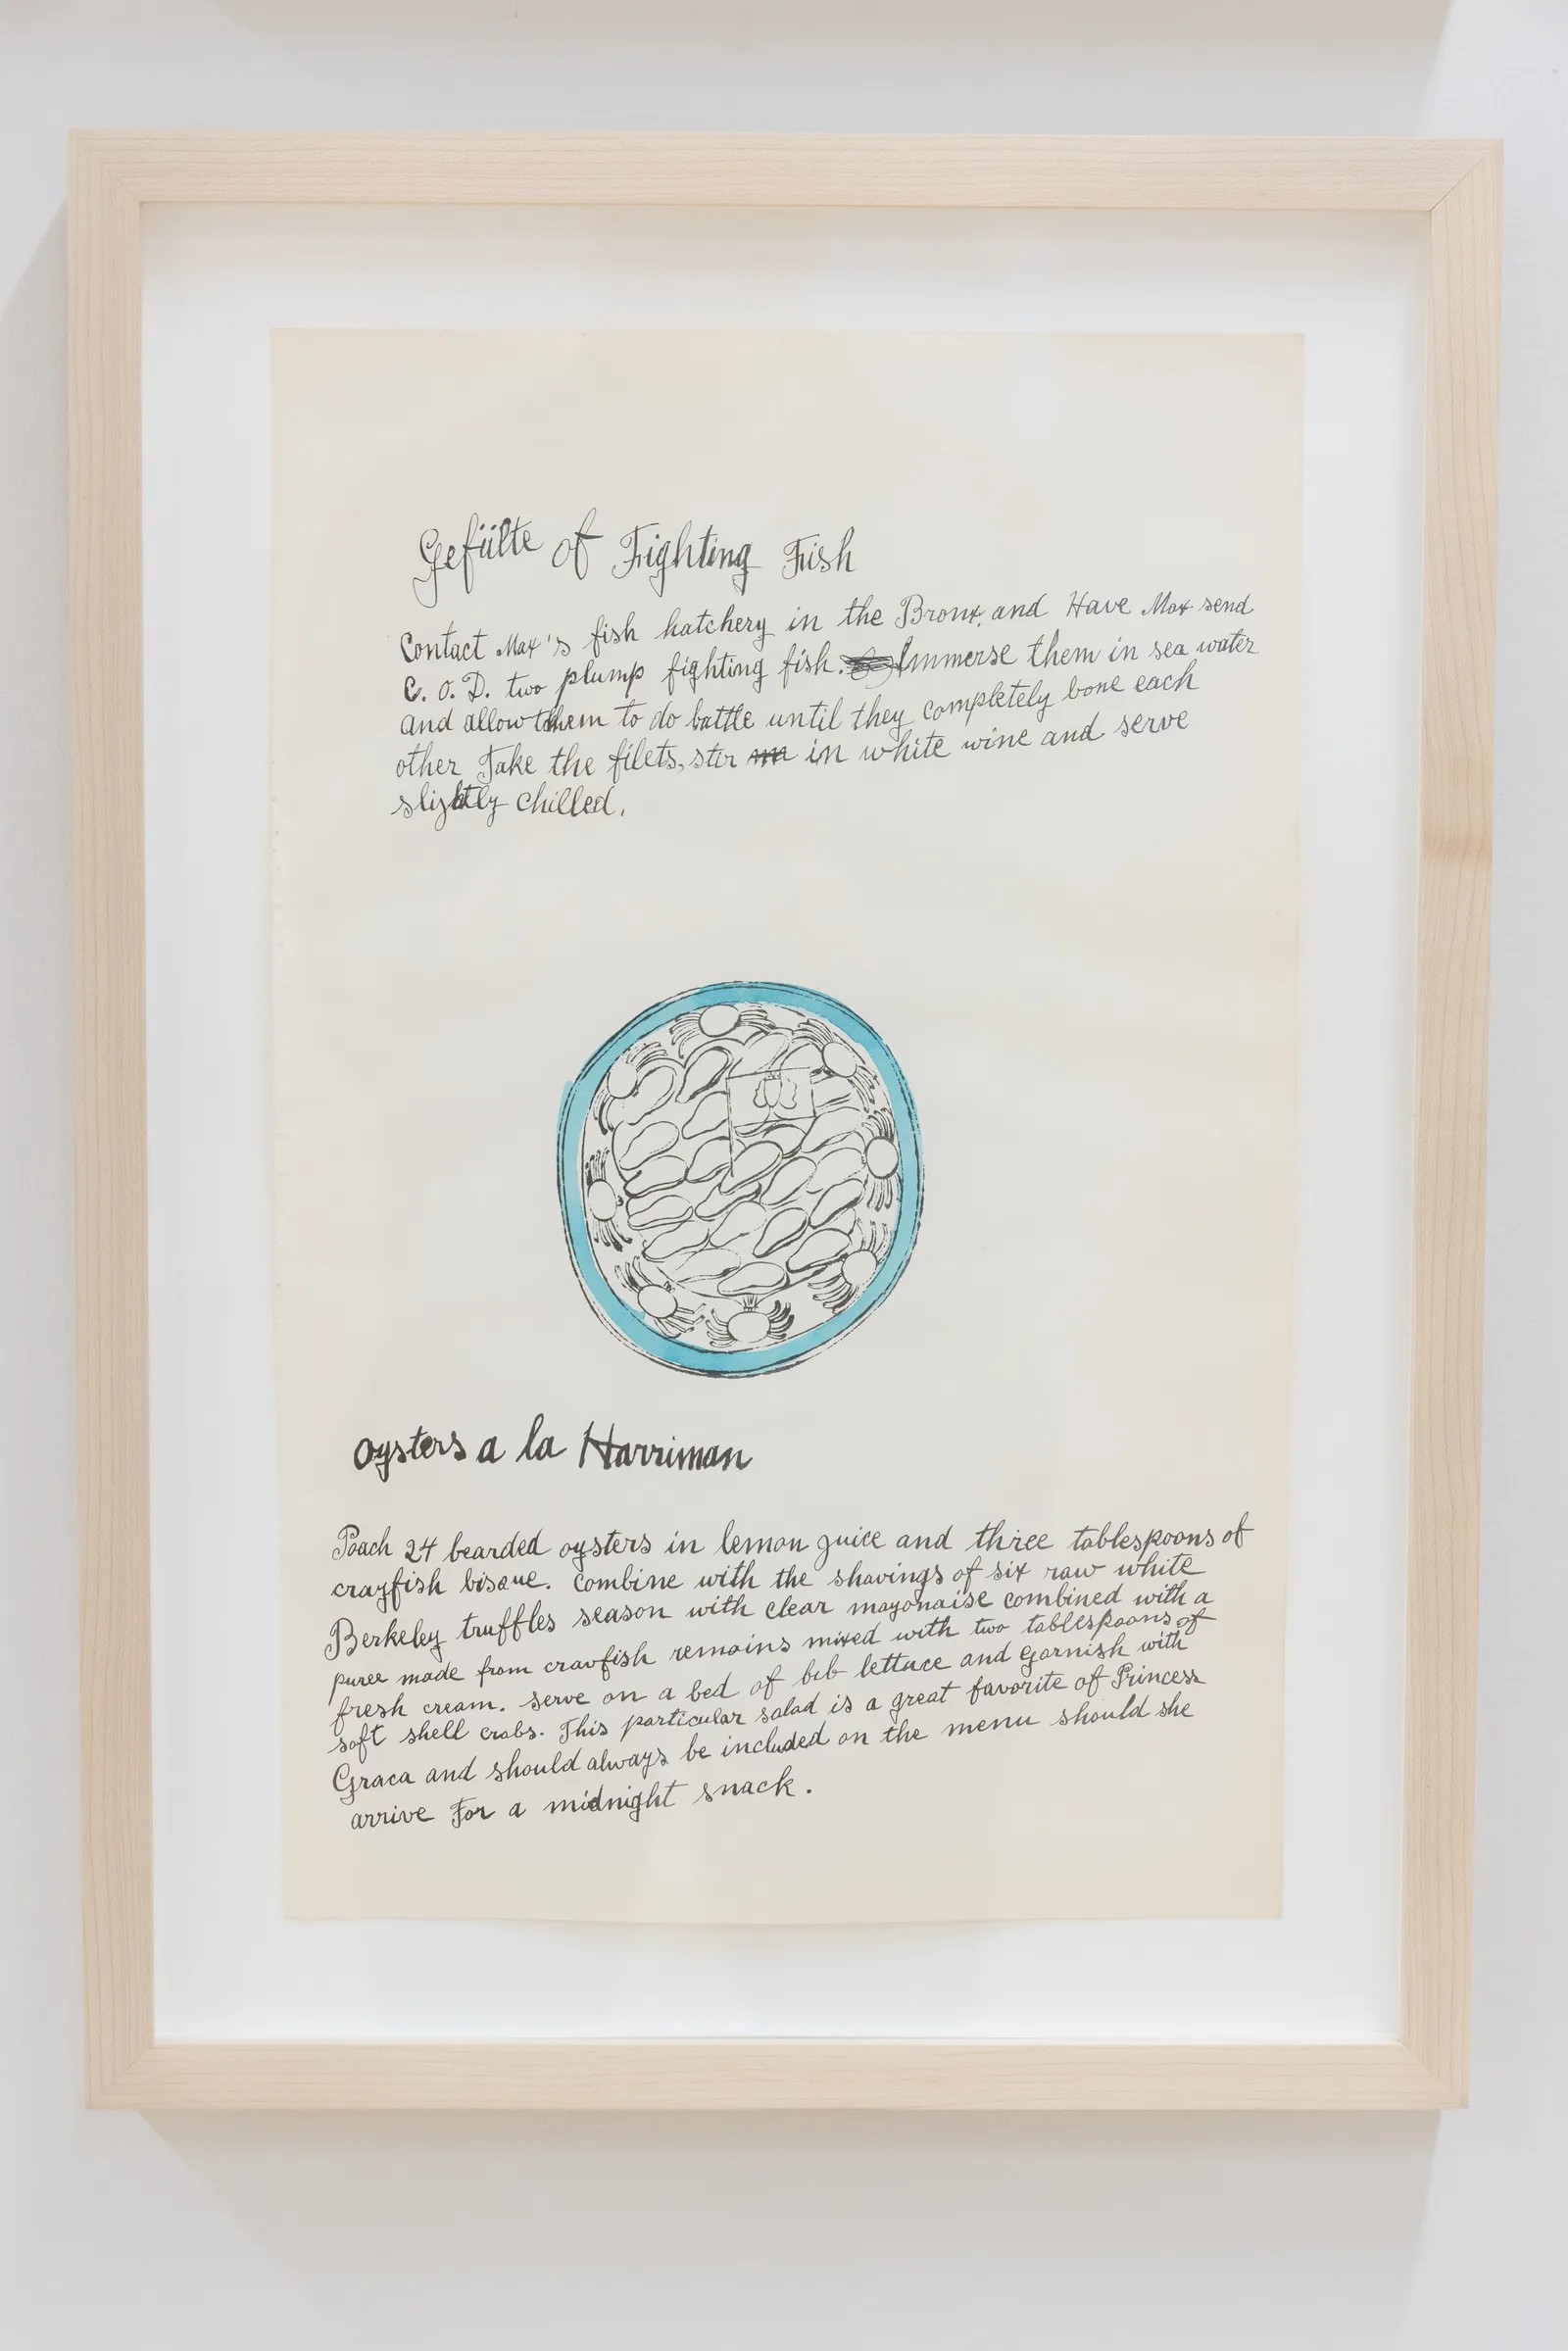 Gefülte of Fighting Fish
Contact Max's fish hatchery in the Bronx, and Have Max send
C. O. D. two plump fighting fish. Immerse them in sea water
and allow them to do battle until they completely bone each
other Take the filets, stir in white wine and serve
slightly chilled.
Oysters a la Harriman
Poach 24 bearded oysters in lemon juice and three tablespoons of
crayfish bisque. Combine with the shavings of six raw white
Berkeley truffles season with clear mayonaise combined with a
puree made from crayfish remains mixed with two tablespoons of
fresh cream. Serve on a bed of bib lettuce and garnish with
soft shell crabs. This particular salad is a great favorite of Princess
Graca and should always be included on the menu should she
arrive For a midnight snack.